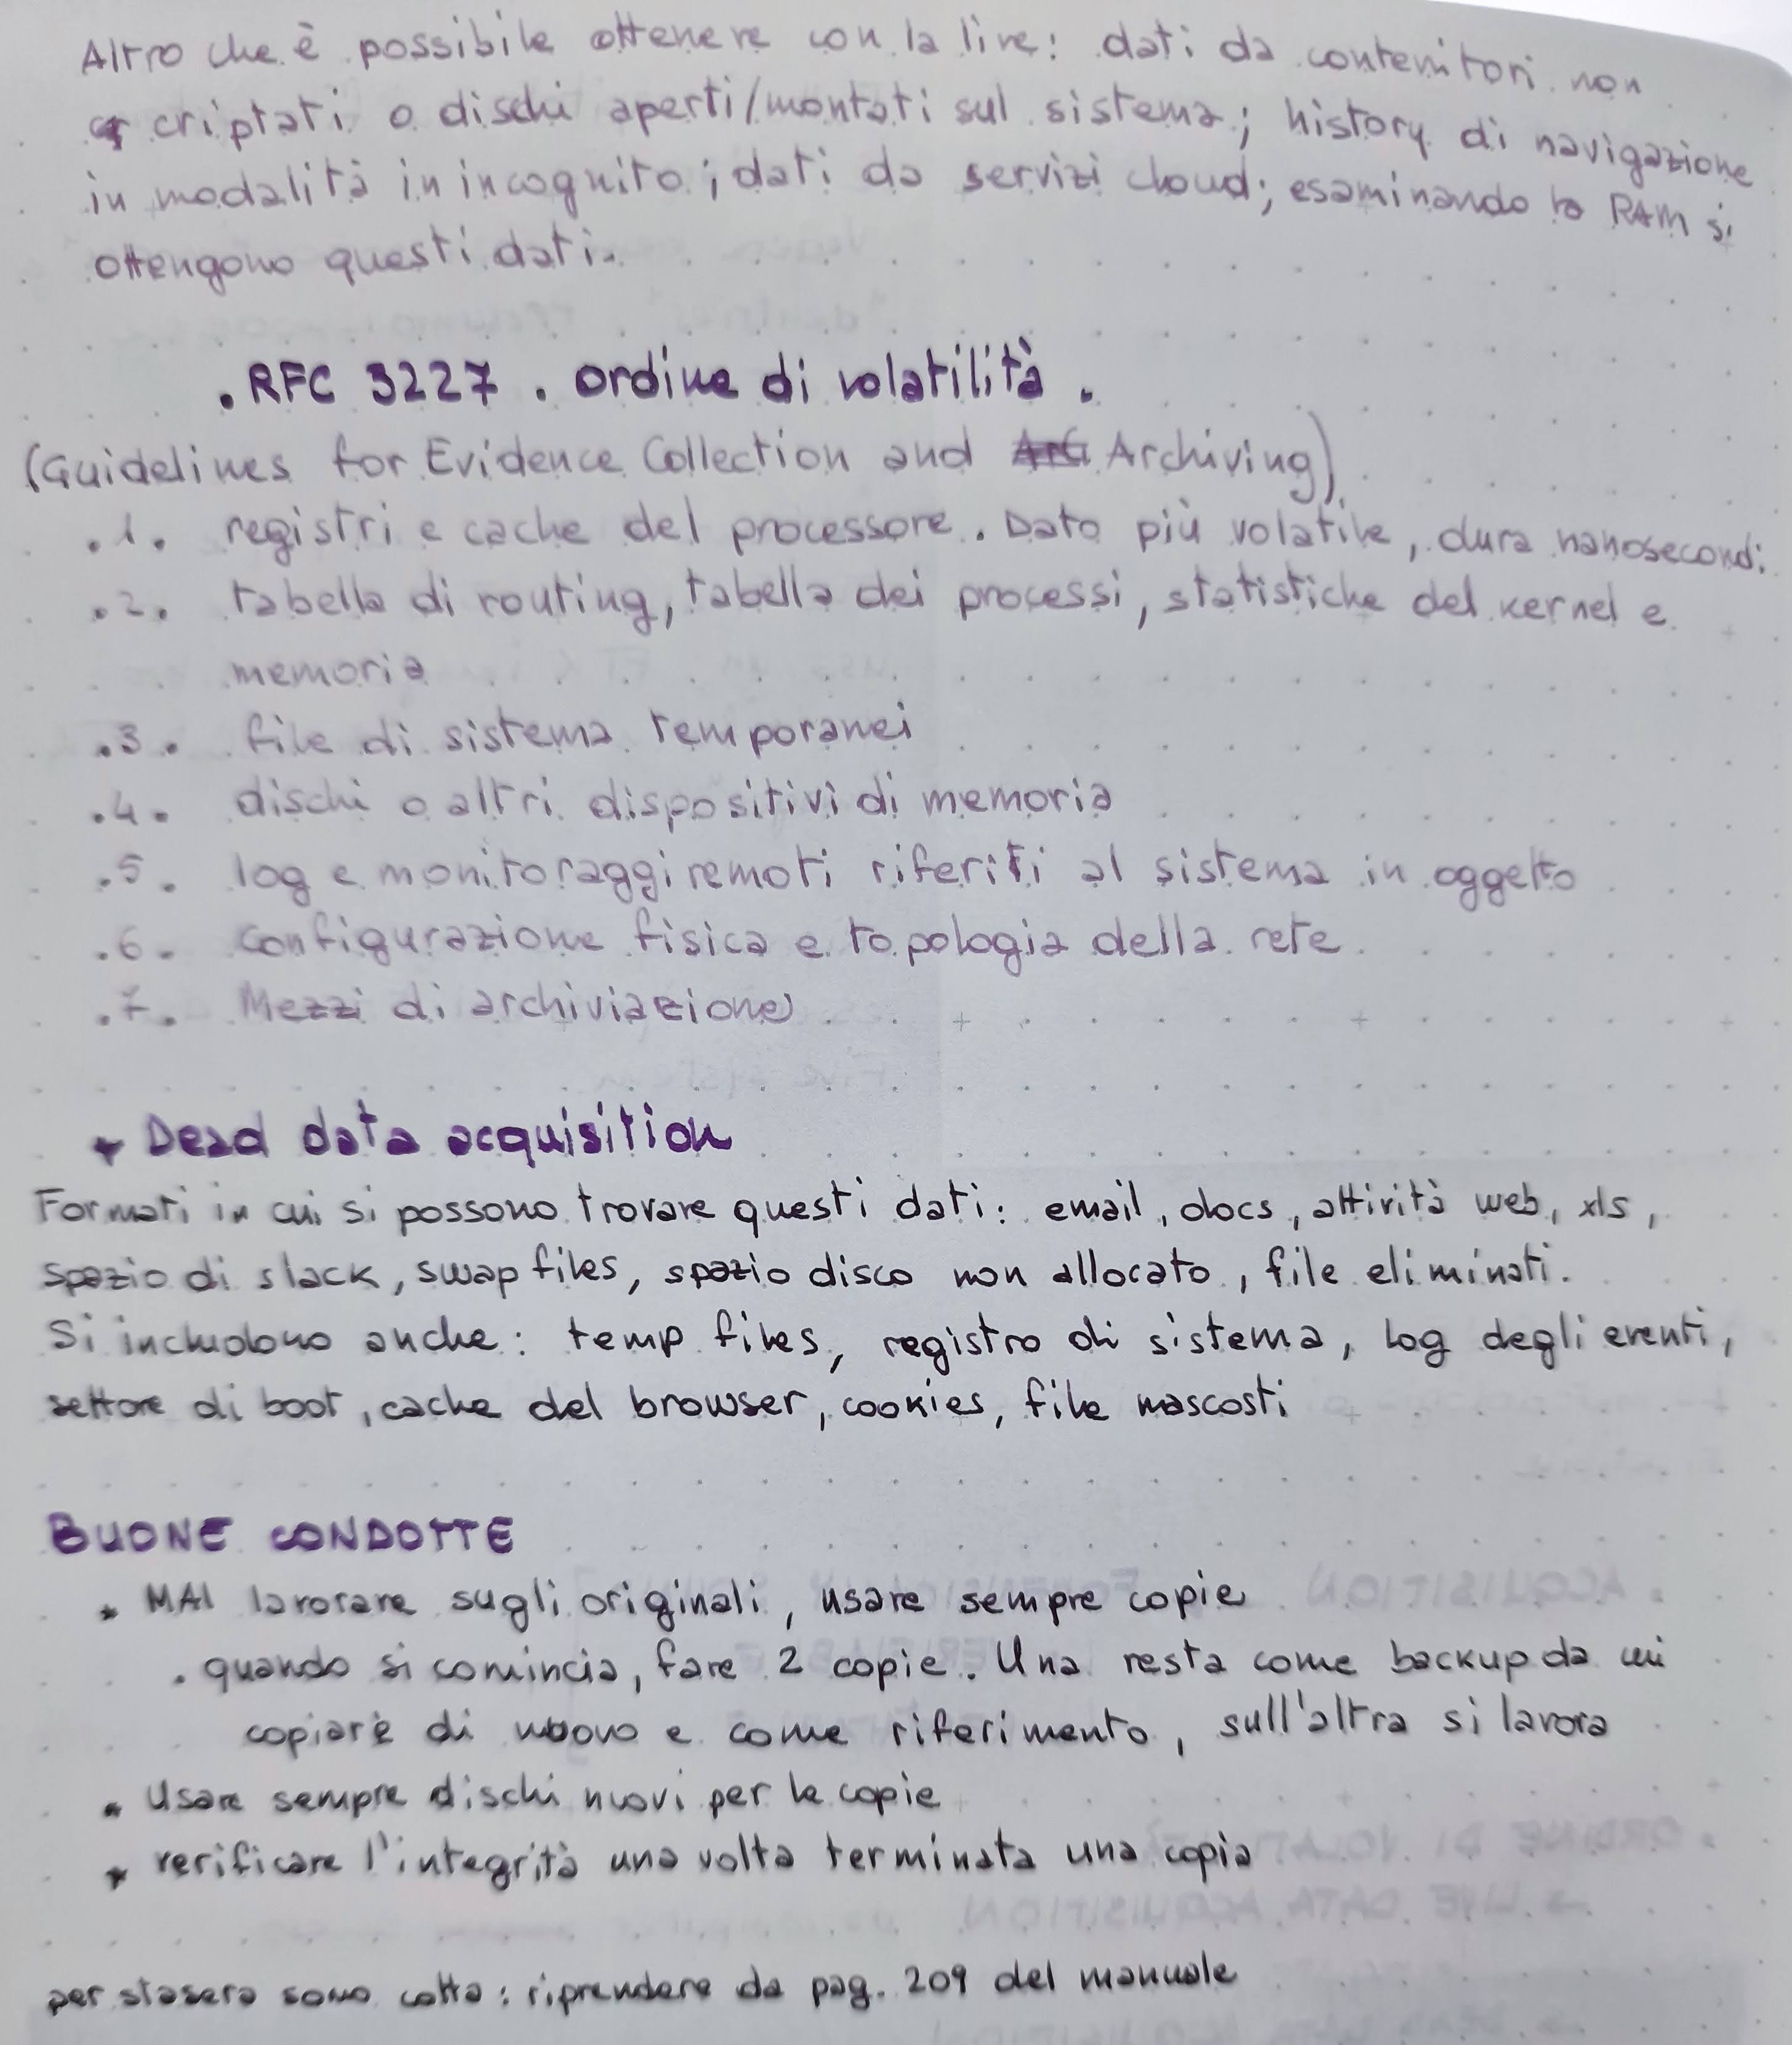 Altro che è possibile ottenere con la live: dati da contenitori non
criptati o dischi aperti/montati sul sistema; history di navigazione
in modalità in incognito; dati da servizi cloud; esaminando la RAM si
ottengono questi dati.
. RFC 3227 . ordine di volatilità .
(Guidelines for Evidence Collection and Archiving)
.1. registri e cache del processore. Dato più volatile, dura nanosecondi
.2. tabella di routing, tabella dei processi, statistiche del kernel e
memoria
.3. file di sistema temporanei
.4. dischi o altri dispositivi di memoria
.5. log e monitoraggi remoti riferiti al sistema in oggetto
.6. configurazione fisica e topologia della rete
.7. Mezzi di archiviazione
* Dead data acquisition
Formati in cui si possono trovare questi dati: email, docs, attività web, xls,
spazio di slack, swap files, spazio disco non allocato, file eliminati.
Si includono anche: temp files, registro di sistema, log degli eventi,
settore di boot, cache del browser, cookies, file nascosti
BUONE CONDOTTE
* MAI lavorare sugli originali, usare sempre copie
. quando si comincia, fare 2 copie. Una resta come backup da cui
copiare di nuovo e come riferimento, sull'altra si lavora
* Usare sempre dischi nuovi per le copie
* verificare l'integrità una volta terminata una copia
per stasera sono cotta: riprendere da pag. 209 del manuale